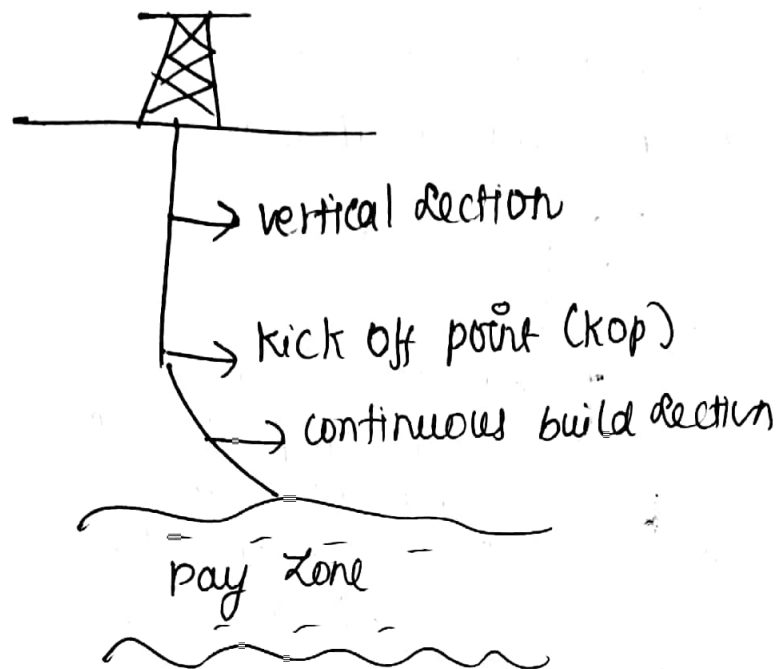 vertical section
Kick off point (KOP)
continuous build section
Pay Zone